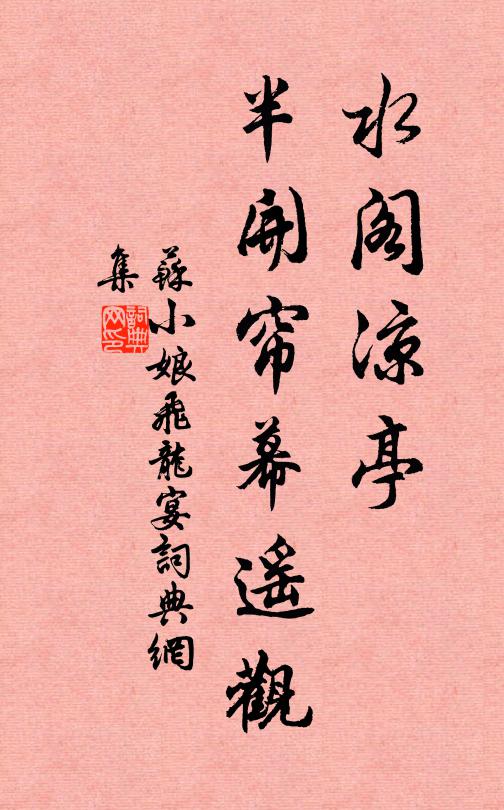 水阁凉亭
半開帘幕遥觀
蘇小娘飛龍宴詞典網
集
詞典
网印